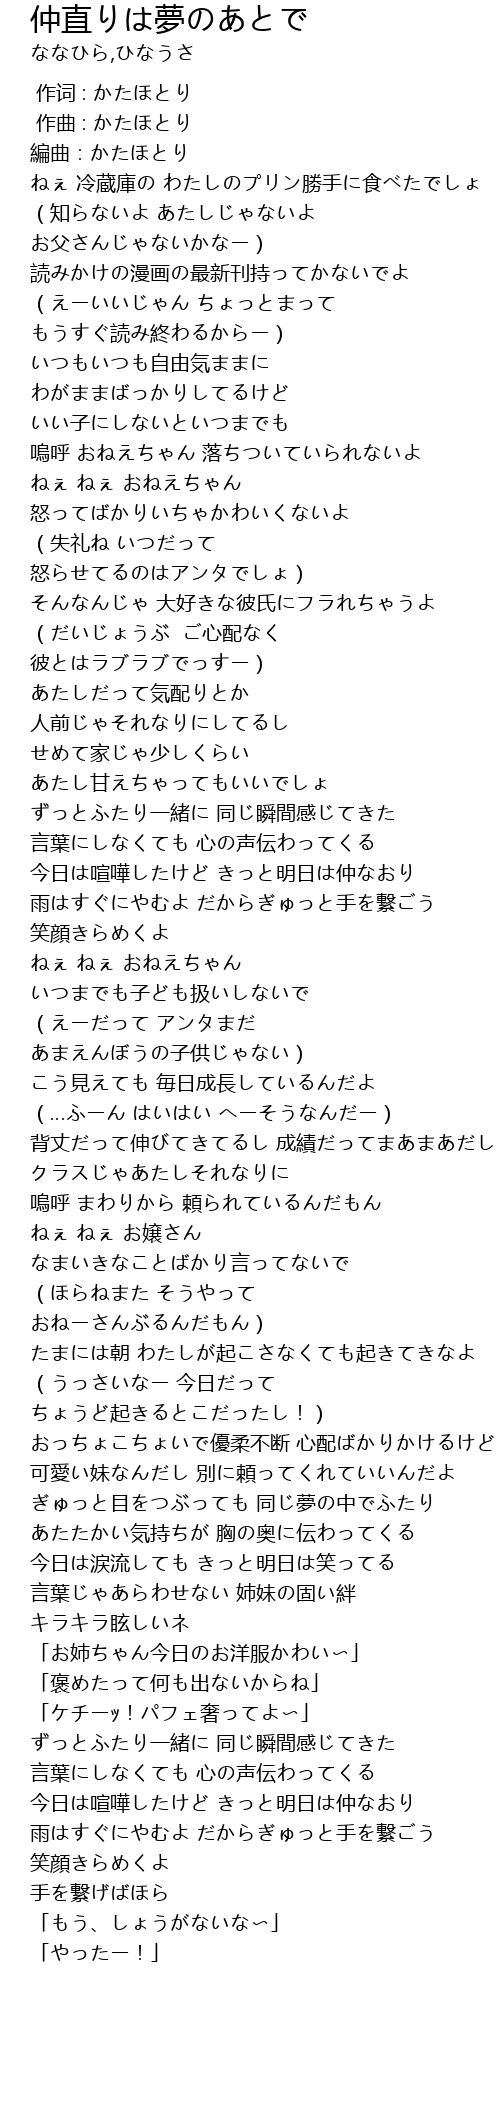 仲直りは夢のあとで
ななひら,ひなうさ
作词 : かたほとり
作曲 : かたほとり
編曲 : かたほとり
ねぇ 冷蔵庫の わたしのプリン勝手に食べたでしょ
( 知らないよ あたしじゃないよ
お父さんじゃないかなー )
読みかけの漫画の最新刊持ってかないでよ
( えーいいじゃん ちょっとまって
もうすぐ読み終わるからー )
いつもいつも自由気ままに
わがままばっかりしてるけど
いい子にしないといつまでも
嗚呼 おねえちゃん 落ちついていられないよ
ねぇ ねぇ おねえちゃん
怒ってばかりいちゃかわいくないよ
( 失礼ね いつだって
怒らせてるのはアンタでしょ )
そんなんじゃ 大好きな彼氏にフラれちゃうよ
( だいじょうぶ  ご心配なく
彼とはラブラブでっすー )
あたしだって気配りとか
人前じゃそれなりにしてるし
せめて家じゃ少しくらい
あたし甘えちゃってもいいでしょ
ずっとふたり一緒に 同じ瞬間感じてきた
言葉にしなくても 心の声伝わってくる
今日は喧嘩したけど きっと明日は仲なおり
雨はすぐにやむよ だからぎゅっと手を繋ごう
笑顔きらめくよ
ねぇ ねぇ おねえちゃん
いつまでも子ども扱いしないで
( えーだって アンタまだ
あまえんぼうの子供じゃない )
こう見えても 毎日成長しているんだよ
( …ふーん はいはい へーそうなんだー )
背丈だって伸びてきてるし 成績だってまあまあだし
クラスじゃあたしそれなりに
嗚呼 まわりから 頼られているんだもん
ねぇ ねぇ お嬢さん
なまいきなことばかり言ってないで
( ほらねまた そうやって
おねーさんぶるんだもん )
たまには朝 わたしが起こさなくても起きてきなよ
( うっさいなー 今日だって
ちょうど起きるとこだったし！ )
おっちょこちょいで優柔不断 心配ばかりかけるけど
可愛い妹なんだし 別に頼ってくれていいんだよ
ぎゅっと目をつぶっても 同じ夢の中でふたり
あたたかい気持ちが 胸の奥に伝わってくる
今日は涙流しても きっと明日は笑ってる
言葉じゃあらわせない 姉妹の固い絆
キラキラ眩しいネ
「お姉ちゃん今日のお洋服かわい〜」
「褒めたって何も出ないからね」
「ケチーｯ！パフェ奢ってよ〜」
ずっとふたり一緒に 同じ瞬間感じてきた
言葉にしなくても 心の声伝わってくる
今日は喧嘩したけど きっと明日は仲なおり
雨はすぐにやむよ だからぎゅっと手を繋ごう
笑顔きらめくよ
手を繋げばほら
「もう、しょうがないな〜」
「やったー！」